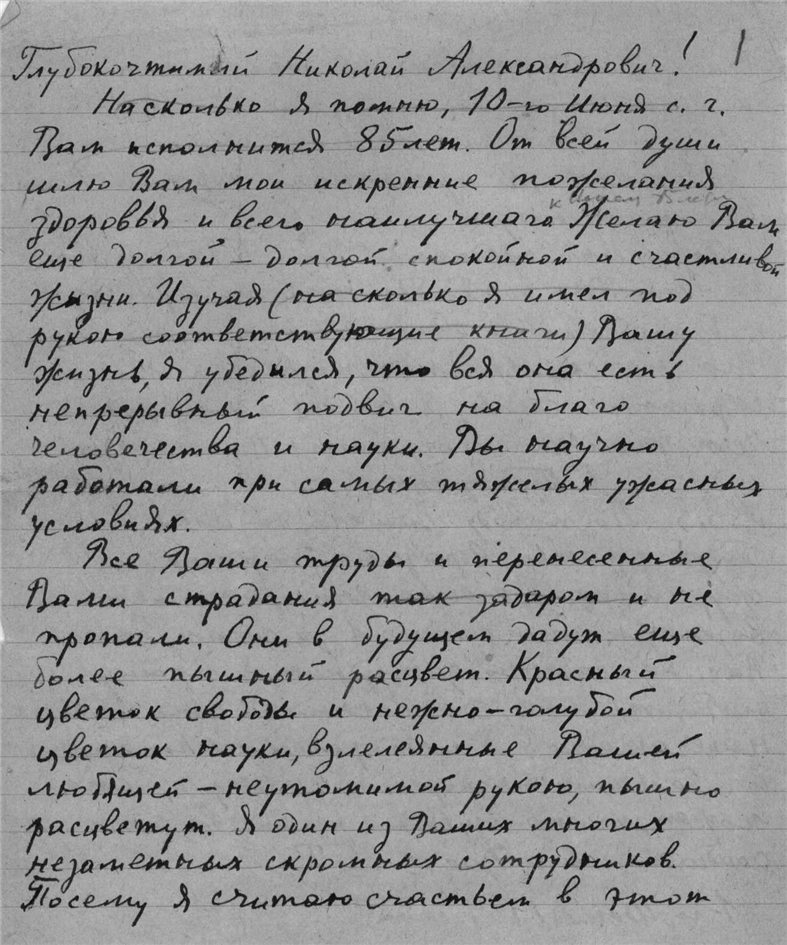 1
Глубокочтимый Николай Александрович!
Насколько я помню, 10-го Июня с. г.
Вам исполнится 85 лет. От всей души
шлю Вам мои искренние пожелания
здоровья и всего наилучшаго Желаю Вам
еще долгой – долгой спокойной и счастливой
жизни. Изучая (на сколько я имел под
рукою соответствующие книги) Вашу
жизнь, я убедился, что вся она есть
непрерывный подвиг на благо
человечества и науки. Вы научно
работали при самых тяжелых ужасных
условиях.
Все Ваши труды и перенесенные
Вами страдания так задаром и не
пропали. Они в будущем дадут еще
более пышный расцвет. Красный
цветок свободы и нежно-голубой
цветок науки, взлелеянные Вашей
любящей – неутомимой рукою, пышно
расцветут. Я один из Ваших многих
незаметных скромных сотрудников.
Посему я считаю счастьем в этот